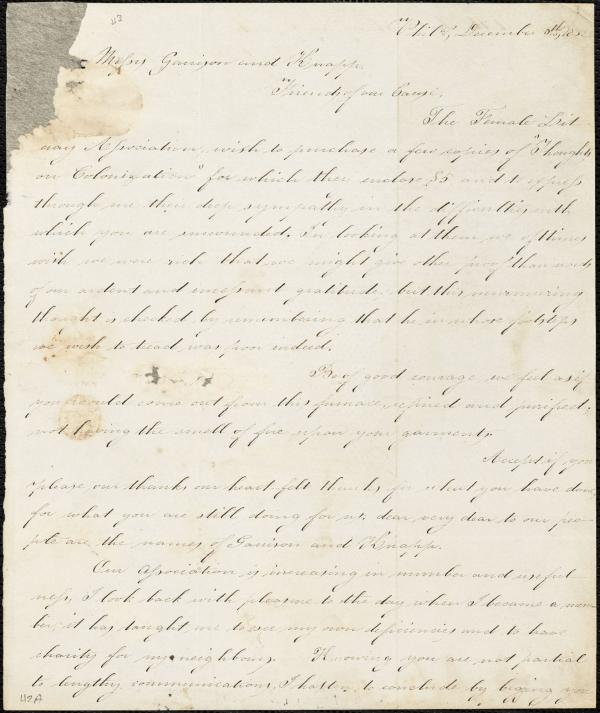 113
Phila, December
Messrs Garrison and Knapp
Friends of our Cause,
The Female Lit
erary Association, wish to purchase a few copies of "Thoughts
on Colonization" for which they enclose $5 and to express
through me their deep sympathy in the difficulties with
which you are surrounded. In looking at them we ofttimes
wish we were rich that we might give other proof than words
of our ardent and incessant gratitude, but this murmuring
thought is checked by remembering that he in whose footsteps
we wish to tread was poor indeed.
Be of good courage we feel as if
you would come out from this furnace, refined and purified,
not having the smell of fire upon your garments.
Accept if you
please our thanks our heart felt thanks for what you have done
for what you are still doing for us. dear very dear to our peo-
ple are the names of Garrison and Knapp.
Our Association is increasing in number and useful
ness, I look back with pleasure to the day when I became a mem
ber, it has taught me to see my own deficiencies and to have
charity for my neighbours. Knowing you are not partial
to lengthy communications, I hasten to conclude by begging you
112A